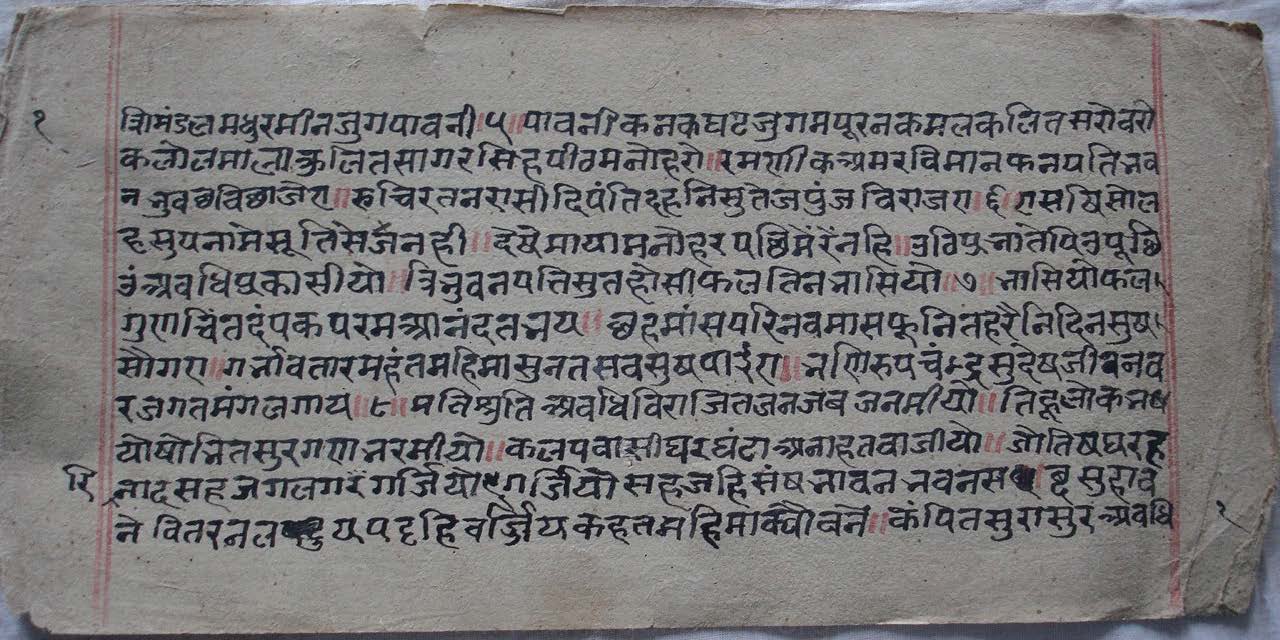 १
शिमंडल मधुर मीन जुग पावनी ॥५॥ पावनी कनक घट जुगम पूरन कमल कलित सरोवरो
कलोल माला कुलित सागर सिंह पीठ मनोहरो ॥ रमणीक अमर विमान फनपति भव
न भुव छवि छाजए ॥ रुचि रतन रासी दिपंति दहनि सु तेज पुंज विराजए ॥६॥ ए सषि सोल
ह सुपना मे सूति सेजॅनही ॥ देषे माया मनोहर पछिमॅ रॅनहि ॥ उठि प्रभाते पिउ पूछि
उं अवधि प्रकासीयो ॥ त्रिभुवन पति सुत होसी फल तिन भासियो ॥७॥ भासियो फल
गुण चिंत दंपक परम आनंदत भय ॥ छह मांस परि नव मास फूनि तह रैनिदिन सुष
सौ गए ॥ गर्भावतार महंत महिमा सुनत सव सुष पाइंए ॥ भणि रुपचंद्र सुदेष जीव नव
र जगत मंगल गाय ॥८॥ मति श्रुति अवधि विराजित जन जब जनमीयो ॥ तिहूलोक भष
यो षोभित सुरगण भरमीयो ॥ कलपवासी घर घंटा अनाहत वाजीयो ॥ जोतिष घर ह
रि नाद सहज गल गरॅ गर्जियो ॥ गर्जियो सहजहि संष भावन भवन स सुहाव
ने वितर नल पदहि वर्जिय कहत महिमा क्यौ वने ॥ कंपित सुरासुर अवधि
१